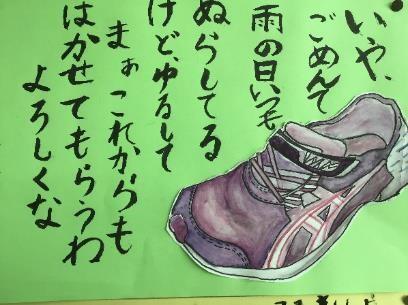 いや、
ごめんて
雨の日いつも
ぬらしてる
けど、ゆるして
まぁこれからも
はかせてもらうわ
よろしくな